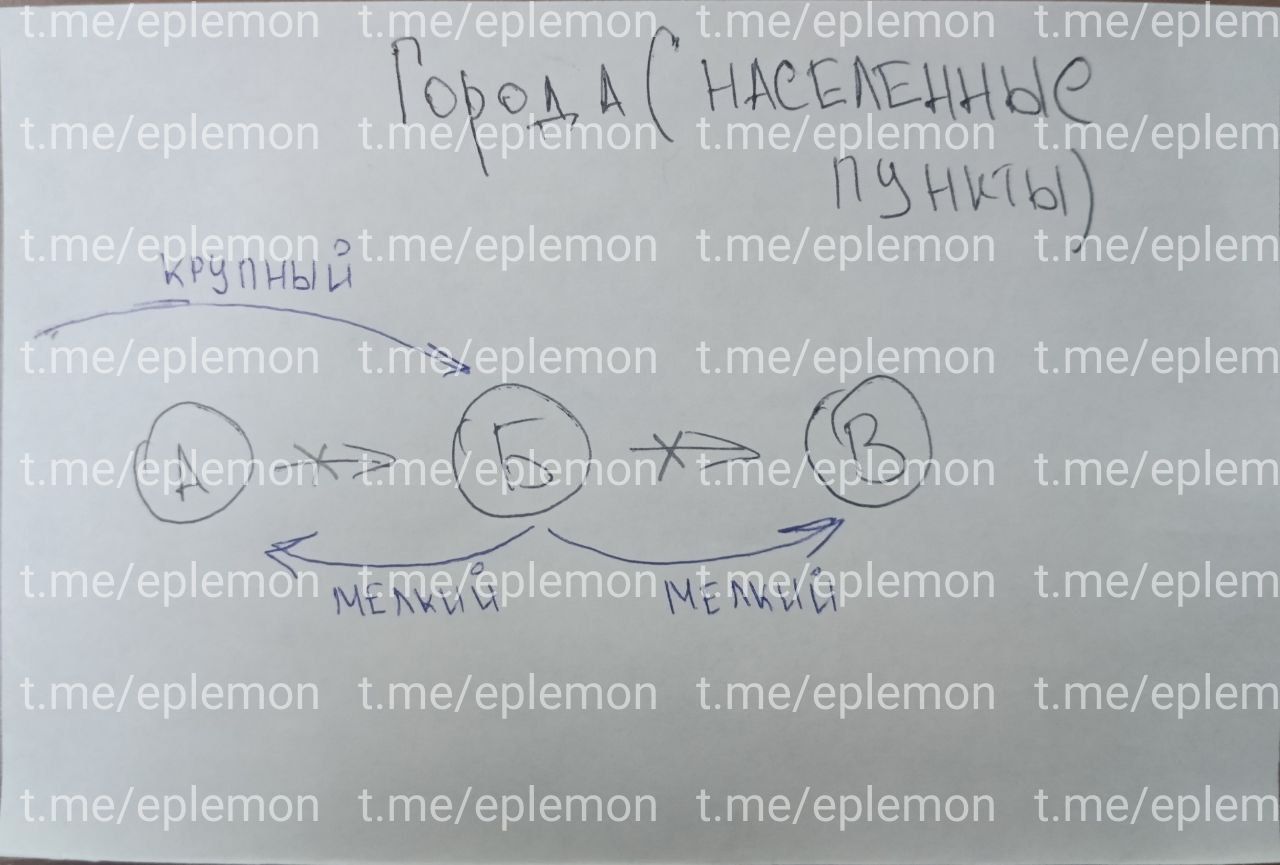 Города (населенные
пункты)
крупный
А
Б
В
мелкий
мелкий
t.me/eplemon t.me/eplemon t.me/eplemon t.me/eplem
t.me/eplemon t.me/eplemon t.me/eplemon t.me/eplem
t.me/eplemon t.me/eplemon t.me/eplemon t.me/eplem
t.me/eplemon t.me/eplemon t.me/eplemon t.me/eplem
t.me/eplemon t.me/eplemon t.me/eplemon t.me/eplem
t.me/eplemon t.me/eplemon t.me/eplemon t.me/eplem
t.me/eplemon t.me/eplemon t.me/eplemon t.me/eplem
t.me/eplemon t.me/eplemon t.me/eplemon t.me/eplem